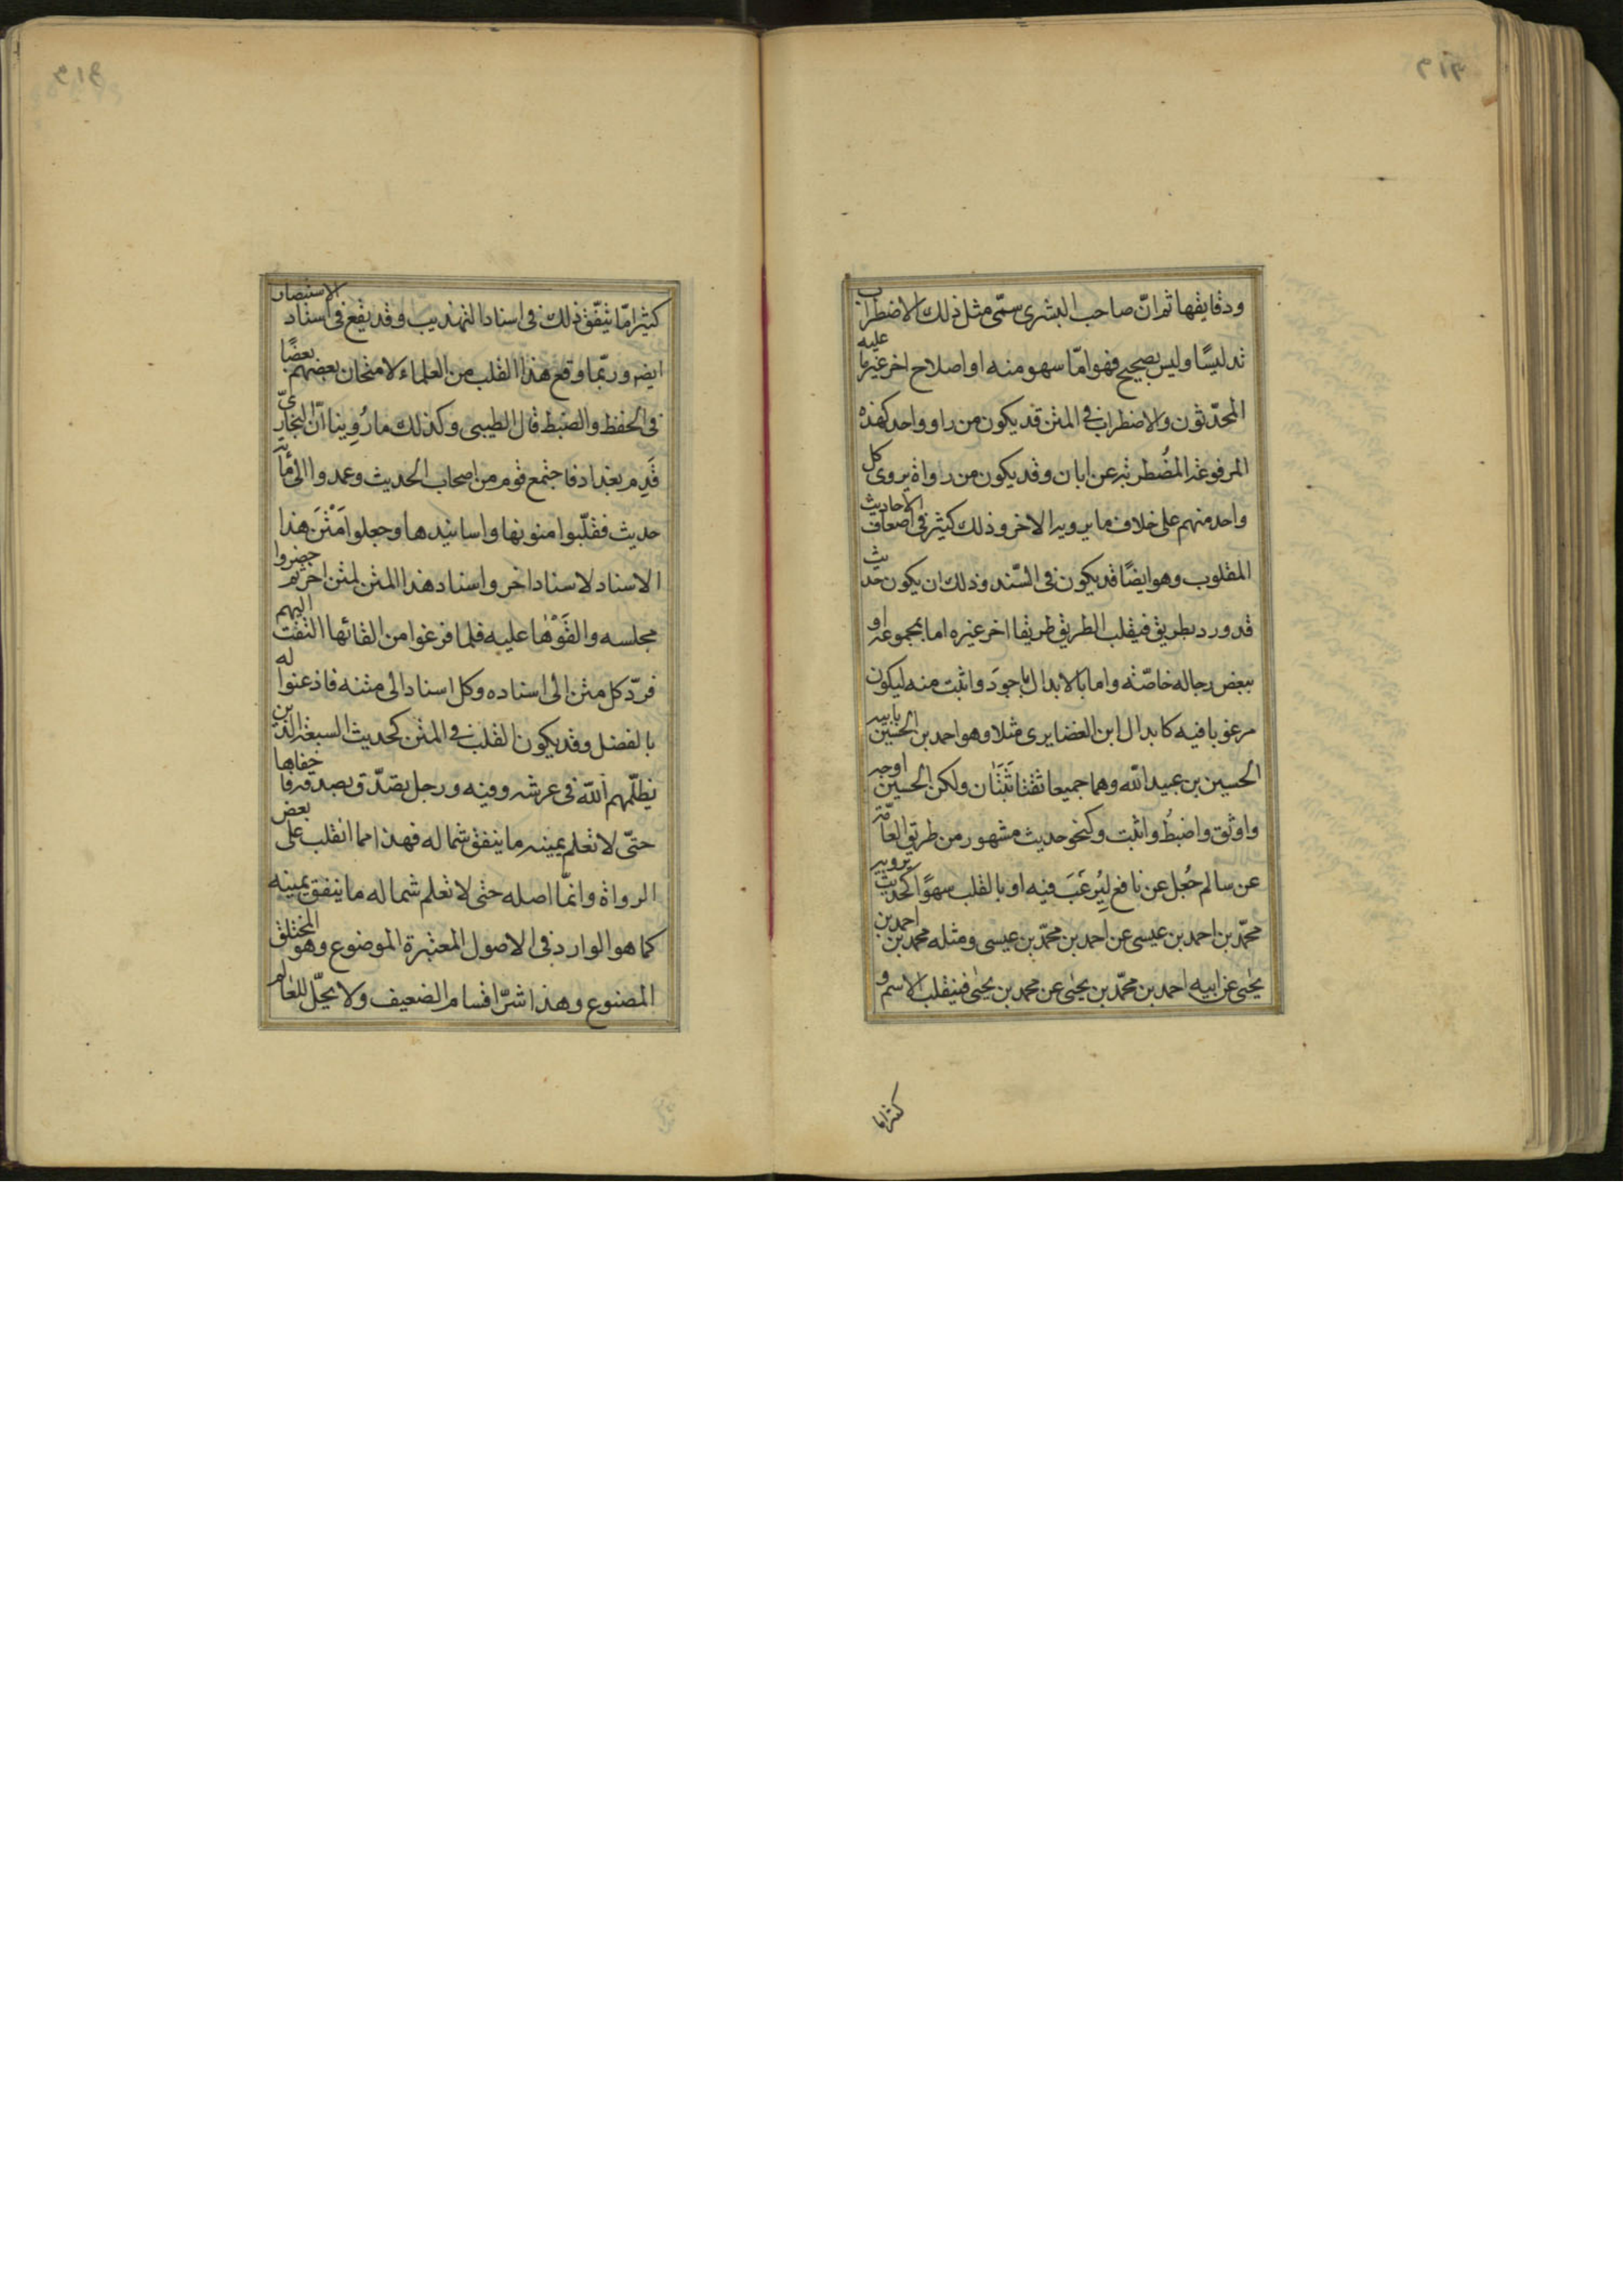 ودقايقها ثم انّ صاحب البشرى سمّى مثل ذلك الاضطراب
تدليسًا وليس بصحيح فهو امّا سهو منه او اصلاح اخر غير ما عليه
المحدّثون والاضطراب في المتن قد يكون من راو واحد كهذه
المرفوعة المضطربة عن ابان وقد يكون من رواة يروى كل
واحد منهم على خلاف ما يرويه الاخر وذلك كثير في اضعاف الاحاديث
المقلوب وهو ايضًا قد يكون في السّند وذلك ان يكون حديث
قد ورد بطريق فيقلب الطريق طريقا اخر غيره اما بمجموعه او
ببعض رجاله خاصّته واما بالابدال باجود واثبت منه ليكون
مرغوبا فيه كابدال ابن الغضايرى مثلا وهو احمد بن الحسين بابيه
الحسين بن عبيد الله وهما جميعا ثقتا ثَبَتَان ولكن الحسين اوجه
واوثق واضبطُ واثبت وكنحو حديث مشهور من طريق العامّة
عن سالم جُعِل عن نافع لِيُرغَبَ فيه او بالقلب سهوًا كحديث يرويه
محمّد بن احمد بن عيسى عن احمد بن محمّد بن عيسى ومثله محمد بن احمد بن
يحيى عن ابيه احمد بن محمّد بن يحيى عن محمد بن يحيى فينقلب الاسم و
كثيرا ما
كثيرا مّا يتّفق ذلك في اسناد التهذيب وقد يقع في اسناد الاستبصار
ايضه وربّما وقع هذا القلب من العلماء لامتحان بعضهم بعضًا
في الحفظ والضبط قال الطيبى وكذلك ما رُوِينا انّ البخارىّ
قَدِم بغداد فاجتمع قوم من اصحاب الحديث وعمدوا الى مأية
حديث فقلّبوا متونها واسانيدها وجعلوا مَتْنَ هذا
الاسناد لاسناد اخر واسناد هذا المتن لمتن اخر ثم حضروا
مجلسه والقَوْها عليه فلما فرغوا من القائها التفت اليهم
فردّ كل متن الى اسناده وكل اسناد الى متنه فاذعنوا له
بالفضل وقد يكون القلب في المتن كحديث السبعة الذين
يظلّهم الله في عرشه وفيه ورجل تصدّق بصدقة فاخفاها
حتّى لا تعلم يمينه ما ينفق شماله فهذا مما انقلب على بعض
الرواة وانمّا اصله حتى لا تعلم شماله ما ينفق يمينه
كما هو الوارد في الاصول المعتبرة الموضوع وهو المختلق
المصنوع وهذا شرّ اقسام الضعيف ولا يحلّ للعالم